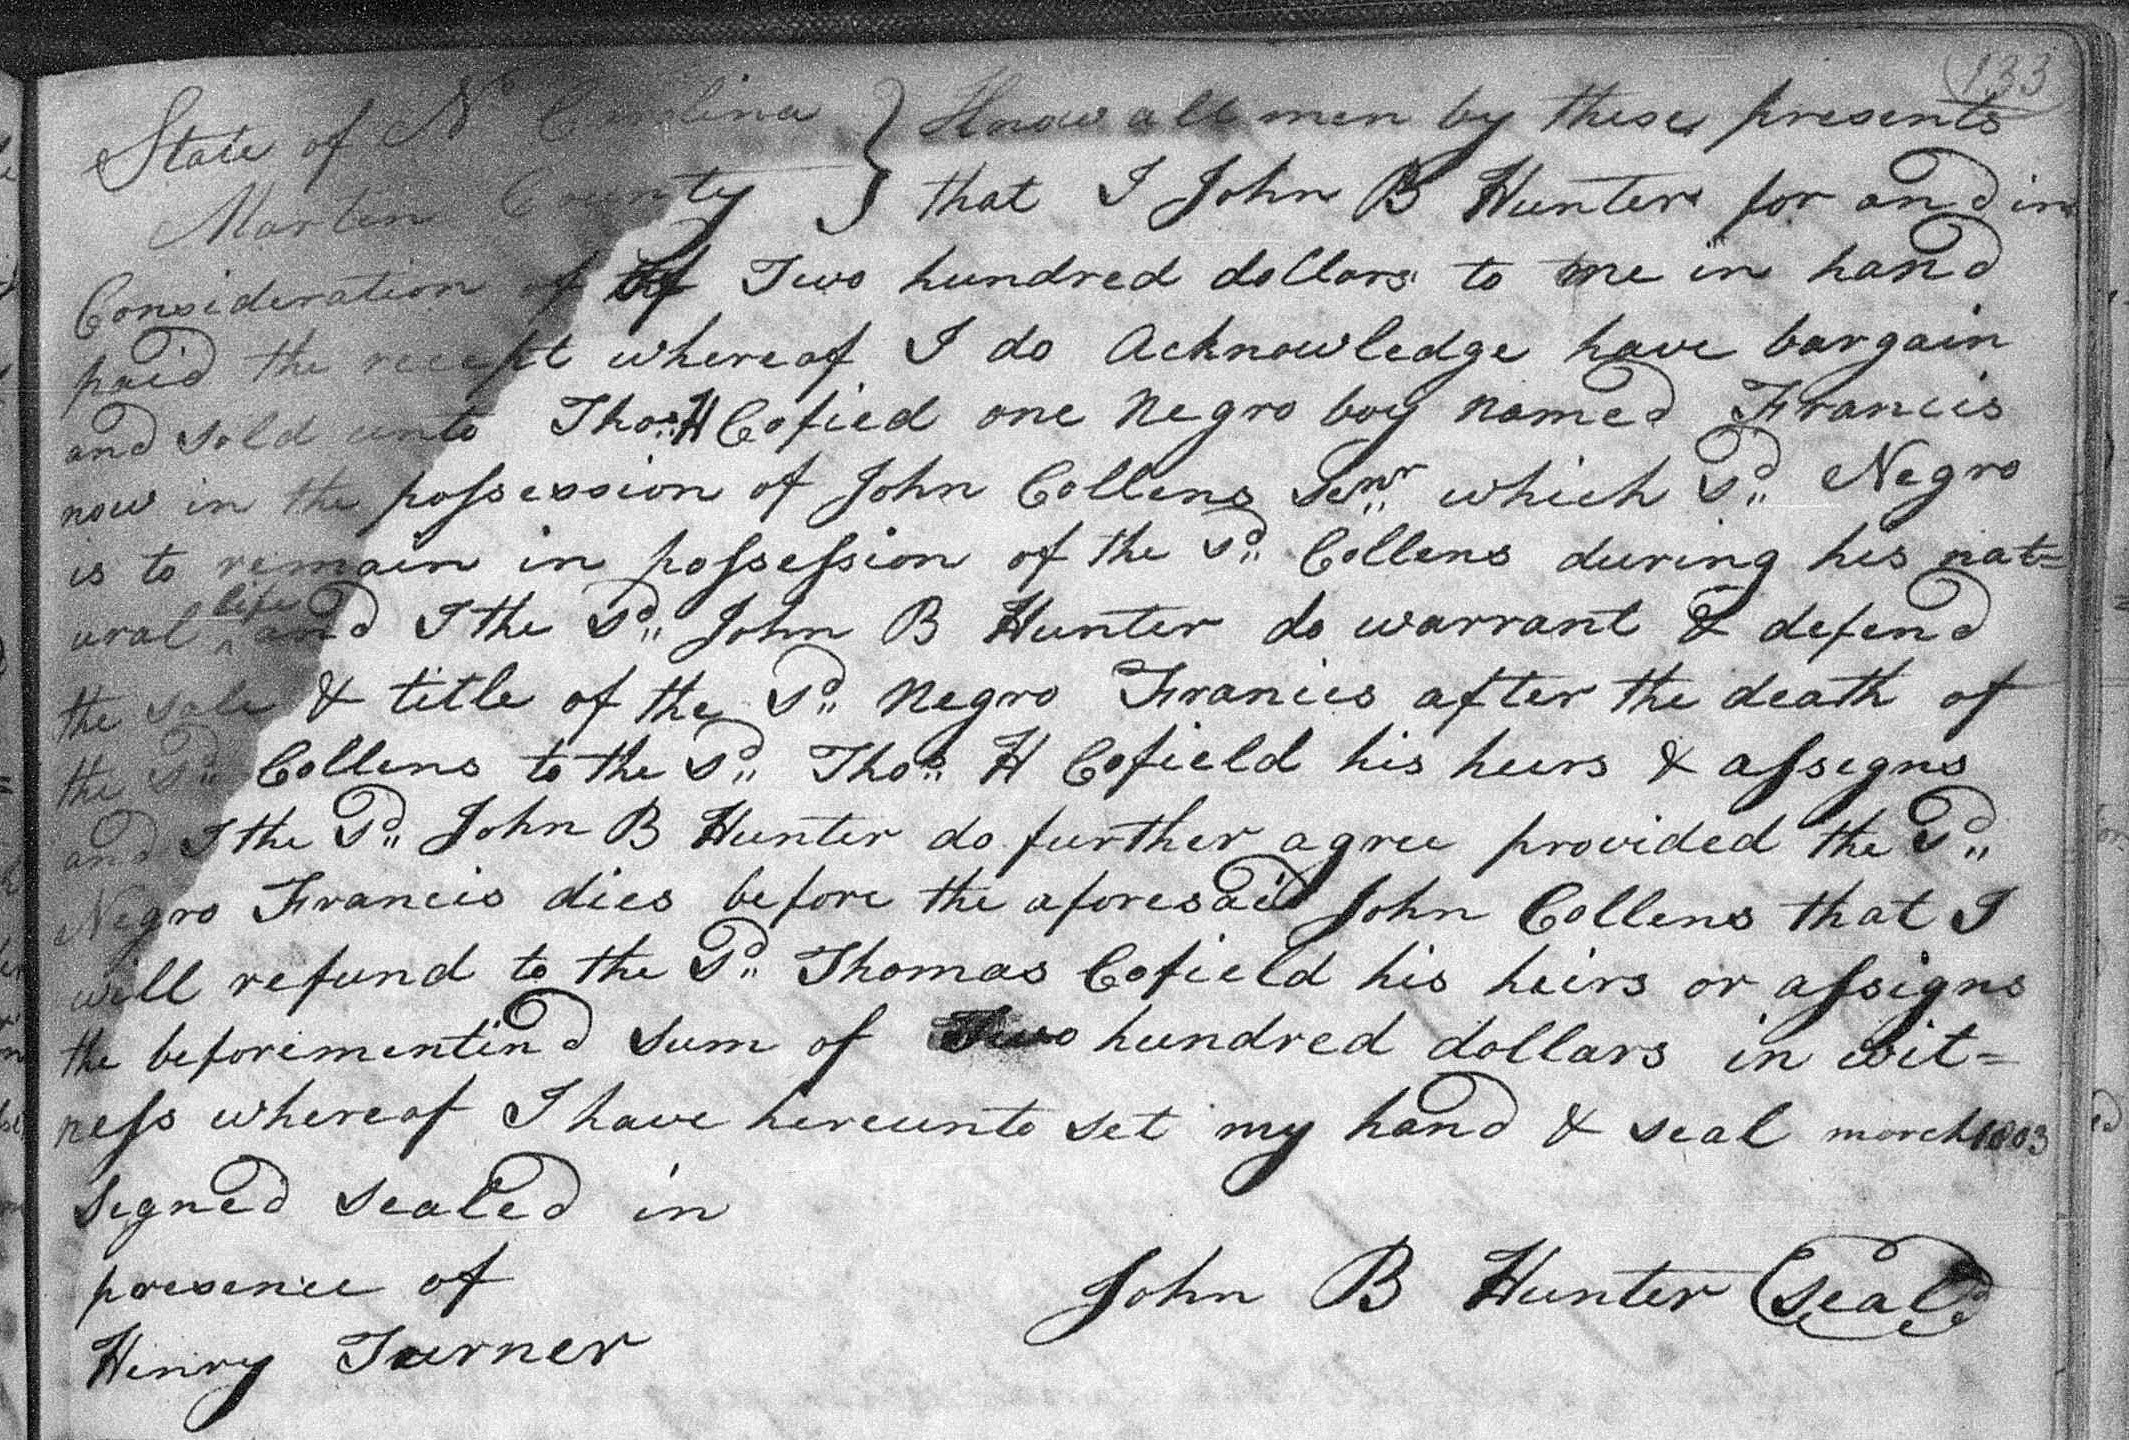 133
State of N Carolina } Know all men by these presents
Martin County } that I John B Hunter for and in
Consideration of of Two hundred dollars to me in hand
paid the recept whereof I do Acknowledge have bargain
and sold unto Thos. H Cofied one Negro boy named Francis
now in the possession of John Collens Senr. which Sd. Negro
is to remain in possession of the sd. Collens during his nat=
ural ^life and I the Sd. John B Hunter do warrant & defend
the sale & title of the Sd. Negro Francis after the death of
the Sd. Collens to the Sd. Thos. H Cofield his heirs & assigns
and I the Sd. John B Hunter do further agree provided the Sd.
Negro Francis dies before the aforesaid John Collens that I
will refund to the Sd. Thomas Cofield his heirs or assigns
the beforementind sum of Two hundred dollars in wit=
ness whereof I have hereunto set my hand & seal march 1803
signed sealed in
presence of
John B Hunter (Seal)
Henry Turner